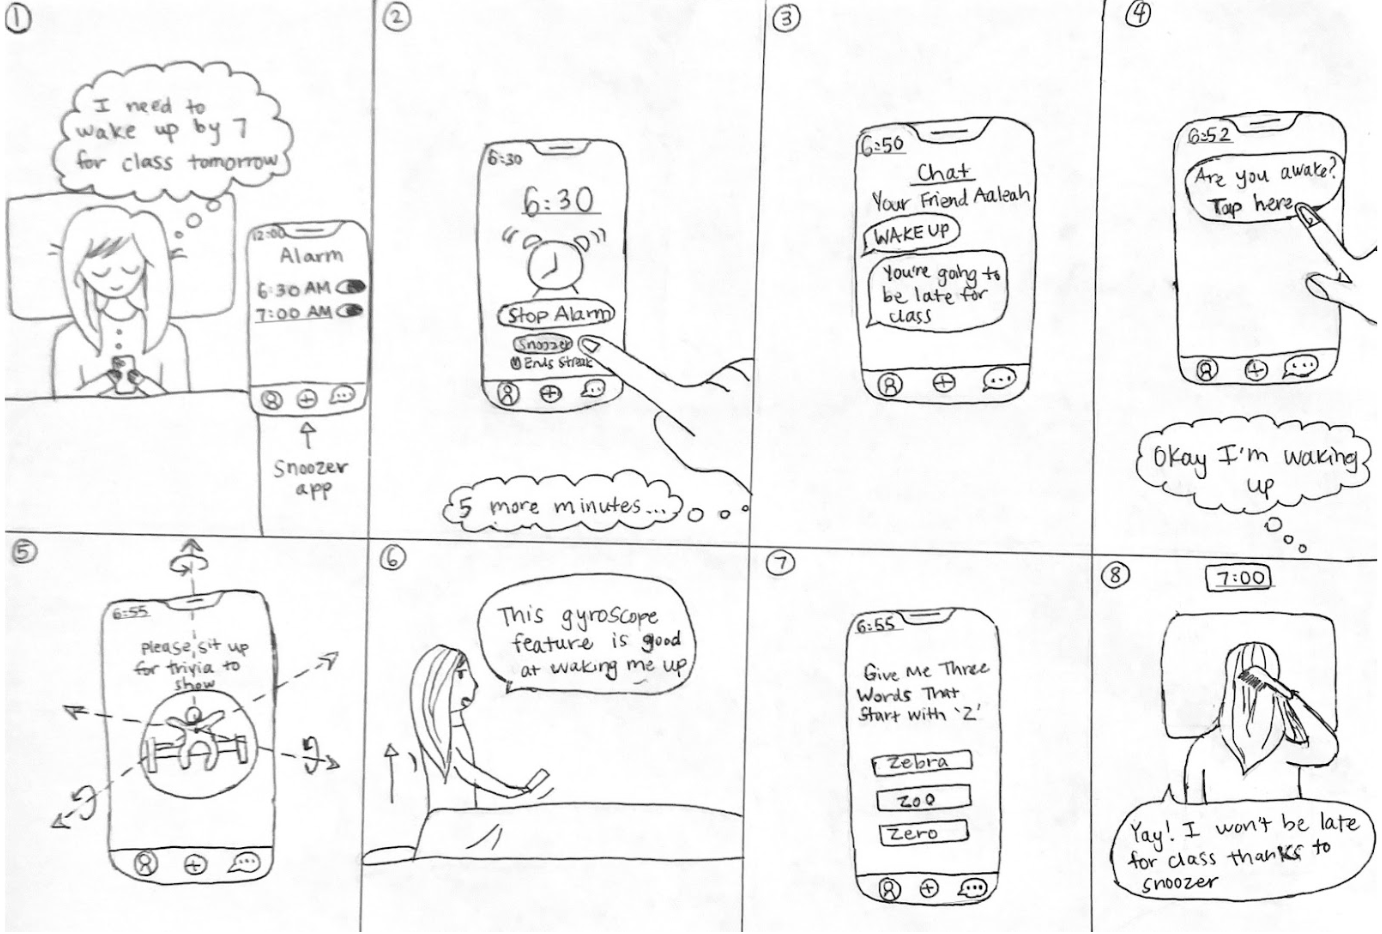 ①
I need to
wake up by 7
for class tomorrow
12:00
Alarm
6:30 AM
7:00 AM
Snoozer
app
②
6:30
6:30
Stop Alarm
Snoozer
Ends Streak
5 more minutes...
③
6:50
Chat
Your Friend Aaleah
WAKE UP
You're going to
be late for
class
④
6:52
Are you awake?
Tap here
Okay I'm waking
up
⑤
6:55
please, sit up
for trivia to
show
⑥
This gyroscope
feature is good
at waking me up
⑦
6:55
Give Me Three
Words That
Start with 'Z'
Zebra
Zoo
Zero
⑧
7:00
Yay! I won't be late
for class thanks to
snoozer